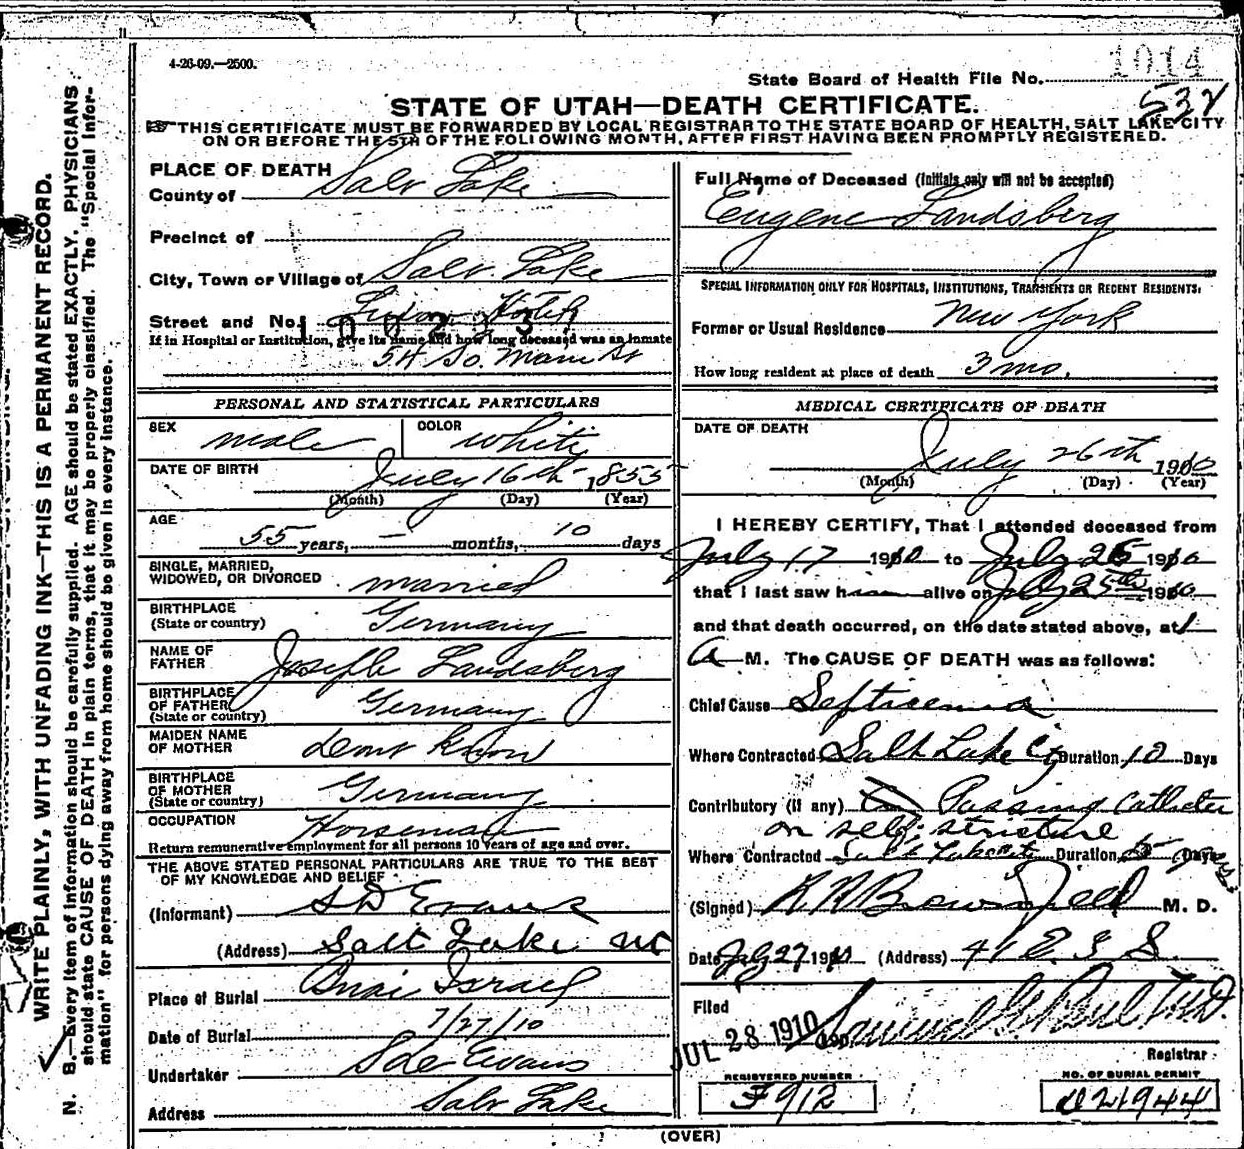 4-26-09.—2500.
1014
State Board of Health File No.
532
STATE OF UTAH—DEATH CERTIFICATE.
THIS CERTIFICATE MUST BE FORWARDED BY LOCAL REGISTRAR TO THE STATE BOARD OF HEALTH, SALT LAKE CITY
ON OR BEFORE THE 5TH OF THE FOLLOWING MONTH, AFTER FIRST HAVING BEEN PROMPTLY REGISTERED.
WRITE PLAINLY, WITH UNFADING INK—THIS IS A PERMANENT RECORD.
N. B.—Every item of information should be carefully supplied. AGE should be stated EXACTLY. PHYSICIANS
should state CAUSE OF DEATH in plain terms, that it may be properly classified. The "Special Infor-
mation" for persons dying away from home should be given in every instance.
PLACE OF DEATH
County of Salt Lake
Precinct of
City, Town or Village of Salt Lake
Street and No.
If in Hospital or Institution, give its name and how long deceased was an inmate
So. Main St
PERSONAL AND STATISTICAL PARTICULARS
SEX male COLOR white
DATE OF BIRTH July 16th 1855
(Month) (Day) (Year)
AGE
55 years, — months, 10 days
SINGLE, MARRIED,
WIDOWED, OR DIVORCED married
BIRTHPLACE
(State or country) Germany
NAME OF
FATHER Joseph Landsberg
BIRTHPLACE
OF FATHER
(State or country) Germany
MAIDEN NAME
OF MOTHER dont know
BIRTHPLACE
OF MOTHER
(State or country) Germany
OCCUPATION Horseman
Return remunerative employment for all persons 10 years of age and over.
THE ABOVE STATED PERSONAL PARTICULARS ARE TRUE TO THE BEST
OF MY KNOWLEDGE AND BELIEF
(Informant) S D Evans
(Address) Salt Lake Ut
Place of Burial Bnai Israel
Date of Burial 7/27/10
Undertaker Evans
Address Salt Lake
Full Name of Deceased (Initials only will not be accepted)
Eugene Landsberg
SPECIAL INFORMATION ONLY FOR HOSPITALS, INSTITUTIONS, TRANSIENTS OR RECENT RESIDENTS:
Former or Usual Residence New York
How long resident at place of death 3 mo.
MEDICAL CERTIFICATE OF DEATH
DATE OF DEATH
July 26th 1910
(Month) (Day) (Year)
I HEREBY CERTIFY, That I attended deceased from
July 17 1910 to July 26 1910
that I last saw him alive on July 25th 1910
and that death occurred, on the date stated above, at 1
A M. The CAUSE OF DEATH was as follows:
Chief Cause Septicemia
Where Contracted Salt Lake City Duration 10 Days
Contributory (if any) Passing Catheter
on self: stricture
Where Contracted Salt Lake City Duration Days
(Signed) R R Brownfield M. D.
Date July 27 1910 (Address) 41 E. 3 S.
Filed
JUL 28 1910 Samuel G. Paul M.D.
Registrar
REGISTERED NUMBER
F912
NO. OF BURIAL PERMIT
021944
(OVER)